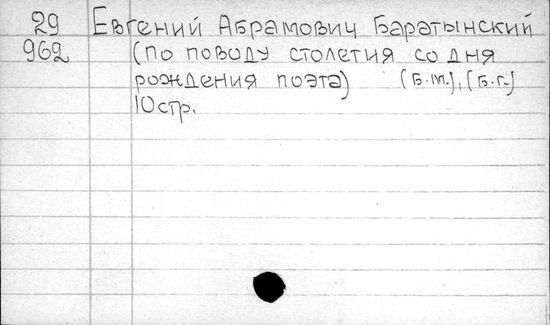 29 Евгений Абрамович Баратынский
962 (по поводу столетия со дня
рождения поэта) (Б.м.), (Б.г.)
10стр.